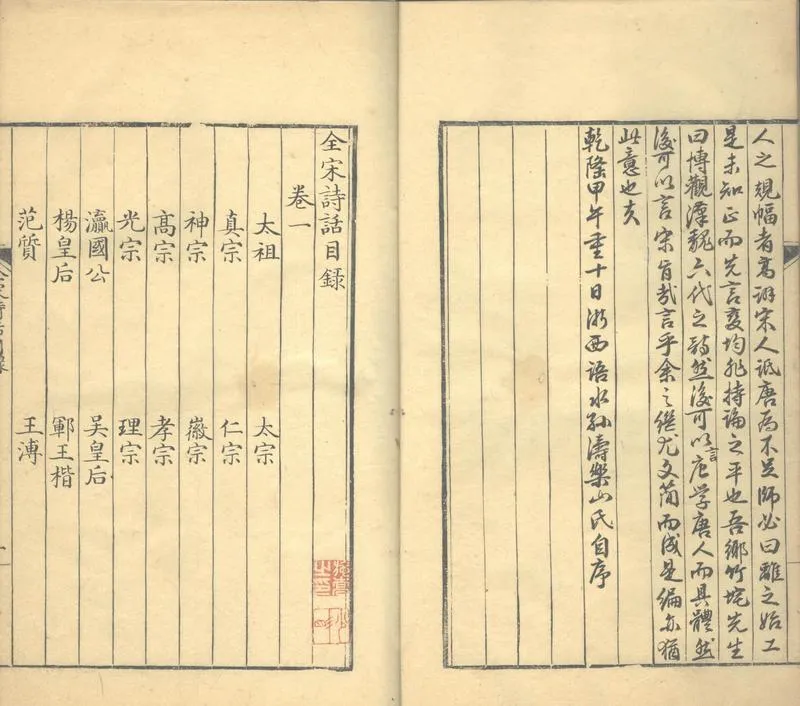 人之規幅者高辨宋人詆唐為不足師必曰離之始工
是未知正而先言變均非持論之平也吾鄉竹垞先生
曰博觀漢魏六代之詩然後可以言唐学唐人而具體然
後可以言宋旨哉言乎余之繼尤文簡而成是編亦猶
此意也夫
乾隆甲午重十日浙西语水孙濤樂山氏自序
全宋詩話目録
卷一
太祖 太宗
真宗 仁宗
神宗 徽宗
高宗 孝宗
光宗 理宗
瀛國公 吴皇后
楊皇后 鄆王楷
范質 王溥